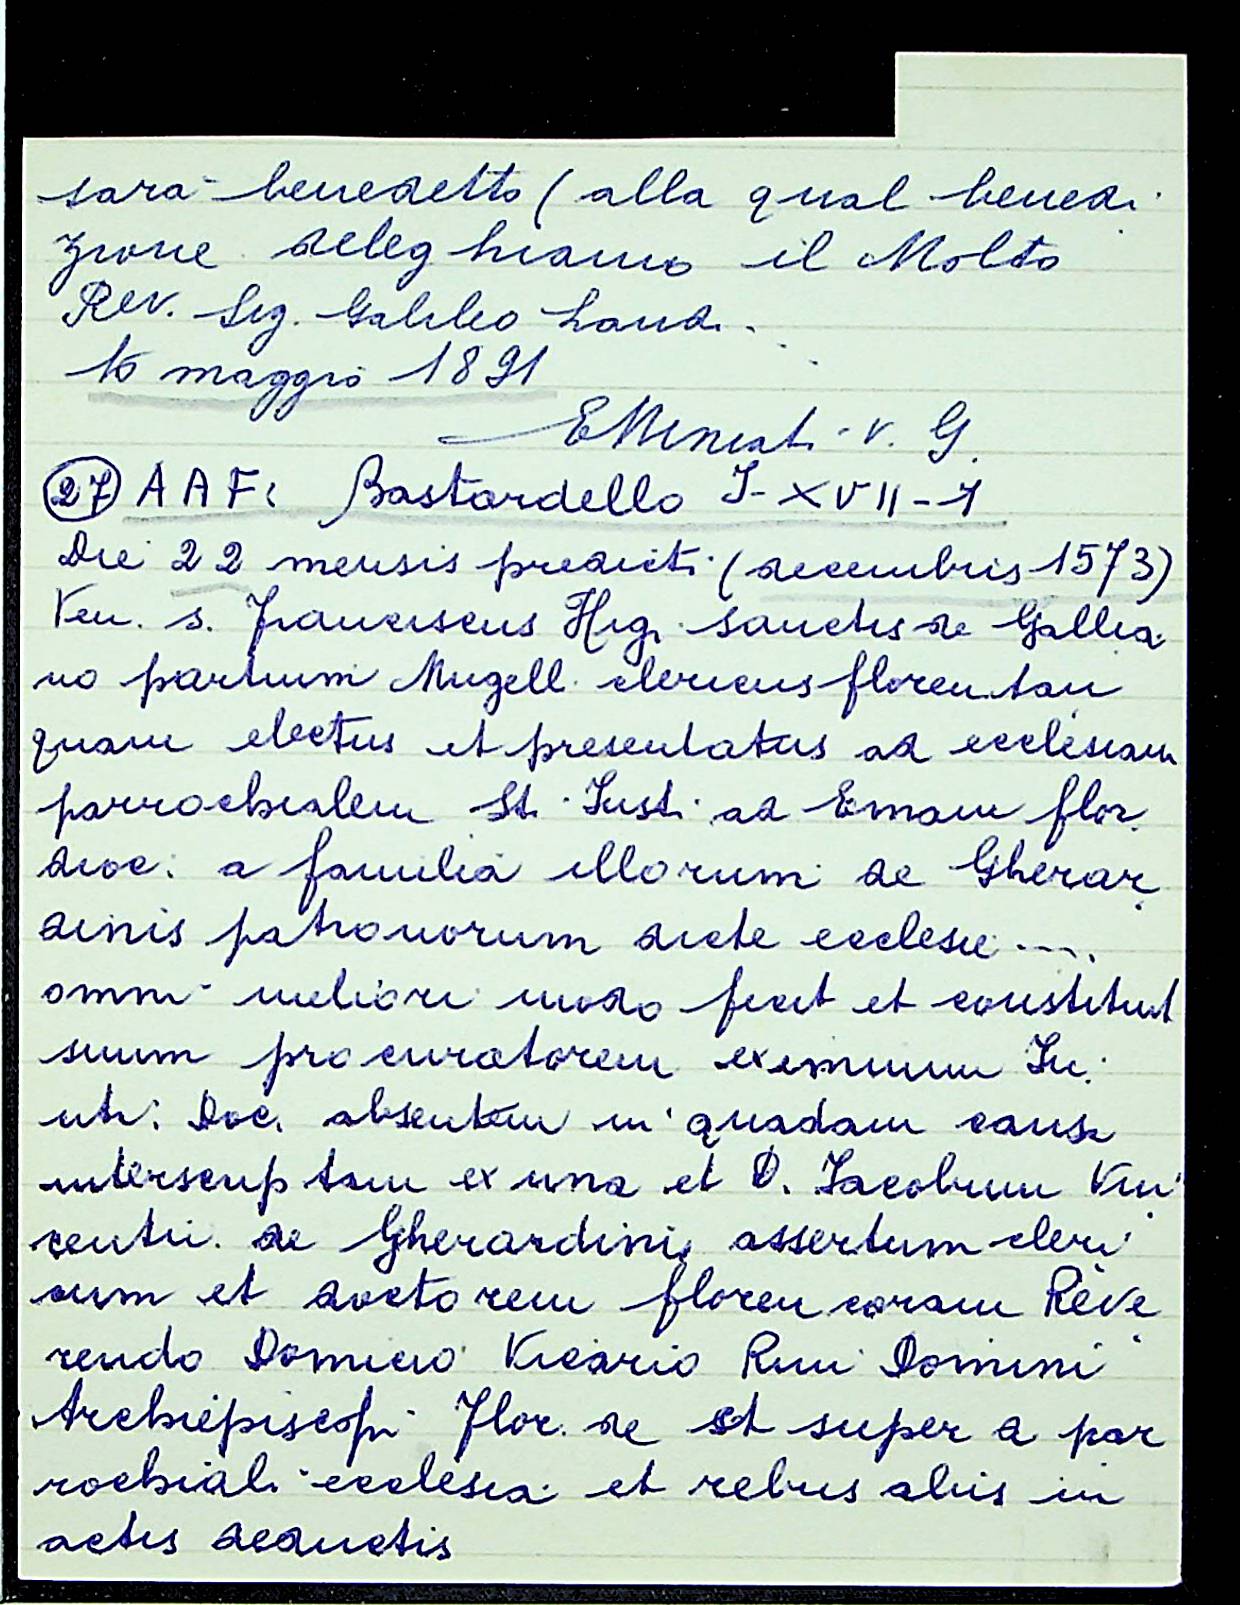 sarà benedetto (alla qual benedi
zione deleghiamo il Molto
Rev. Sig. Galileo Landi.
16 maggio 1891
V. G.
27 AAF: Bastardello I-XVII-1
Die 22 mensis predicti (decembris 1573)
Ven. s. Franciscus Sanctis de Gallia
no partium Mugell. clericus floren. tan
quam electus et presentatus ad ecclesiam
parrochialem Sti. Justi ad Emam flor.
dioc. a familia illorum de Gherar
dinis patronorum dicte ecclesie ....
omni meliori modo fecit et constituit
suum procuratorem eximium Iu.
utr. Doc. absentem in quadam causa
interscriptam ex una et D. Jacobum Vin
centii de Gherardinis assertum cleri
cum et doctorem floren coram Reve
rendo Domino Vicario Rmi Domini
Archiepiscopi Flor. de et super a par
rochiali ecclesia et rebus aliis in
actis deductis